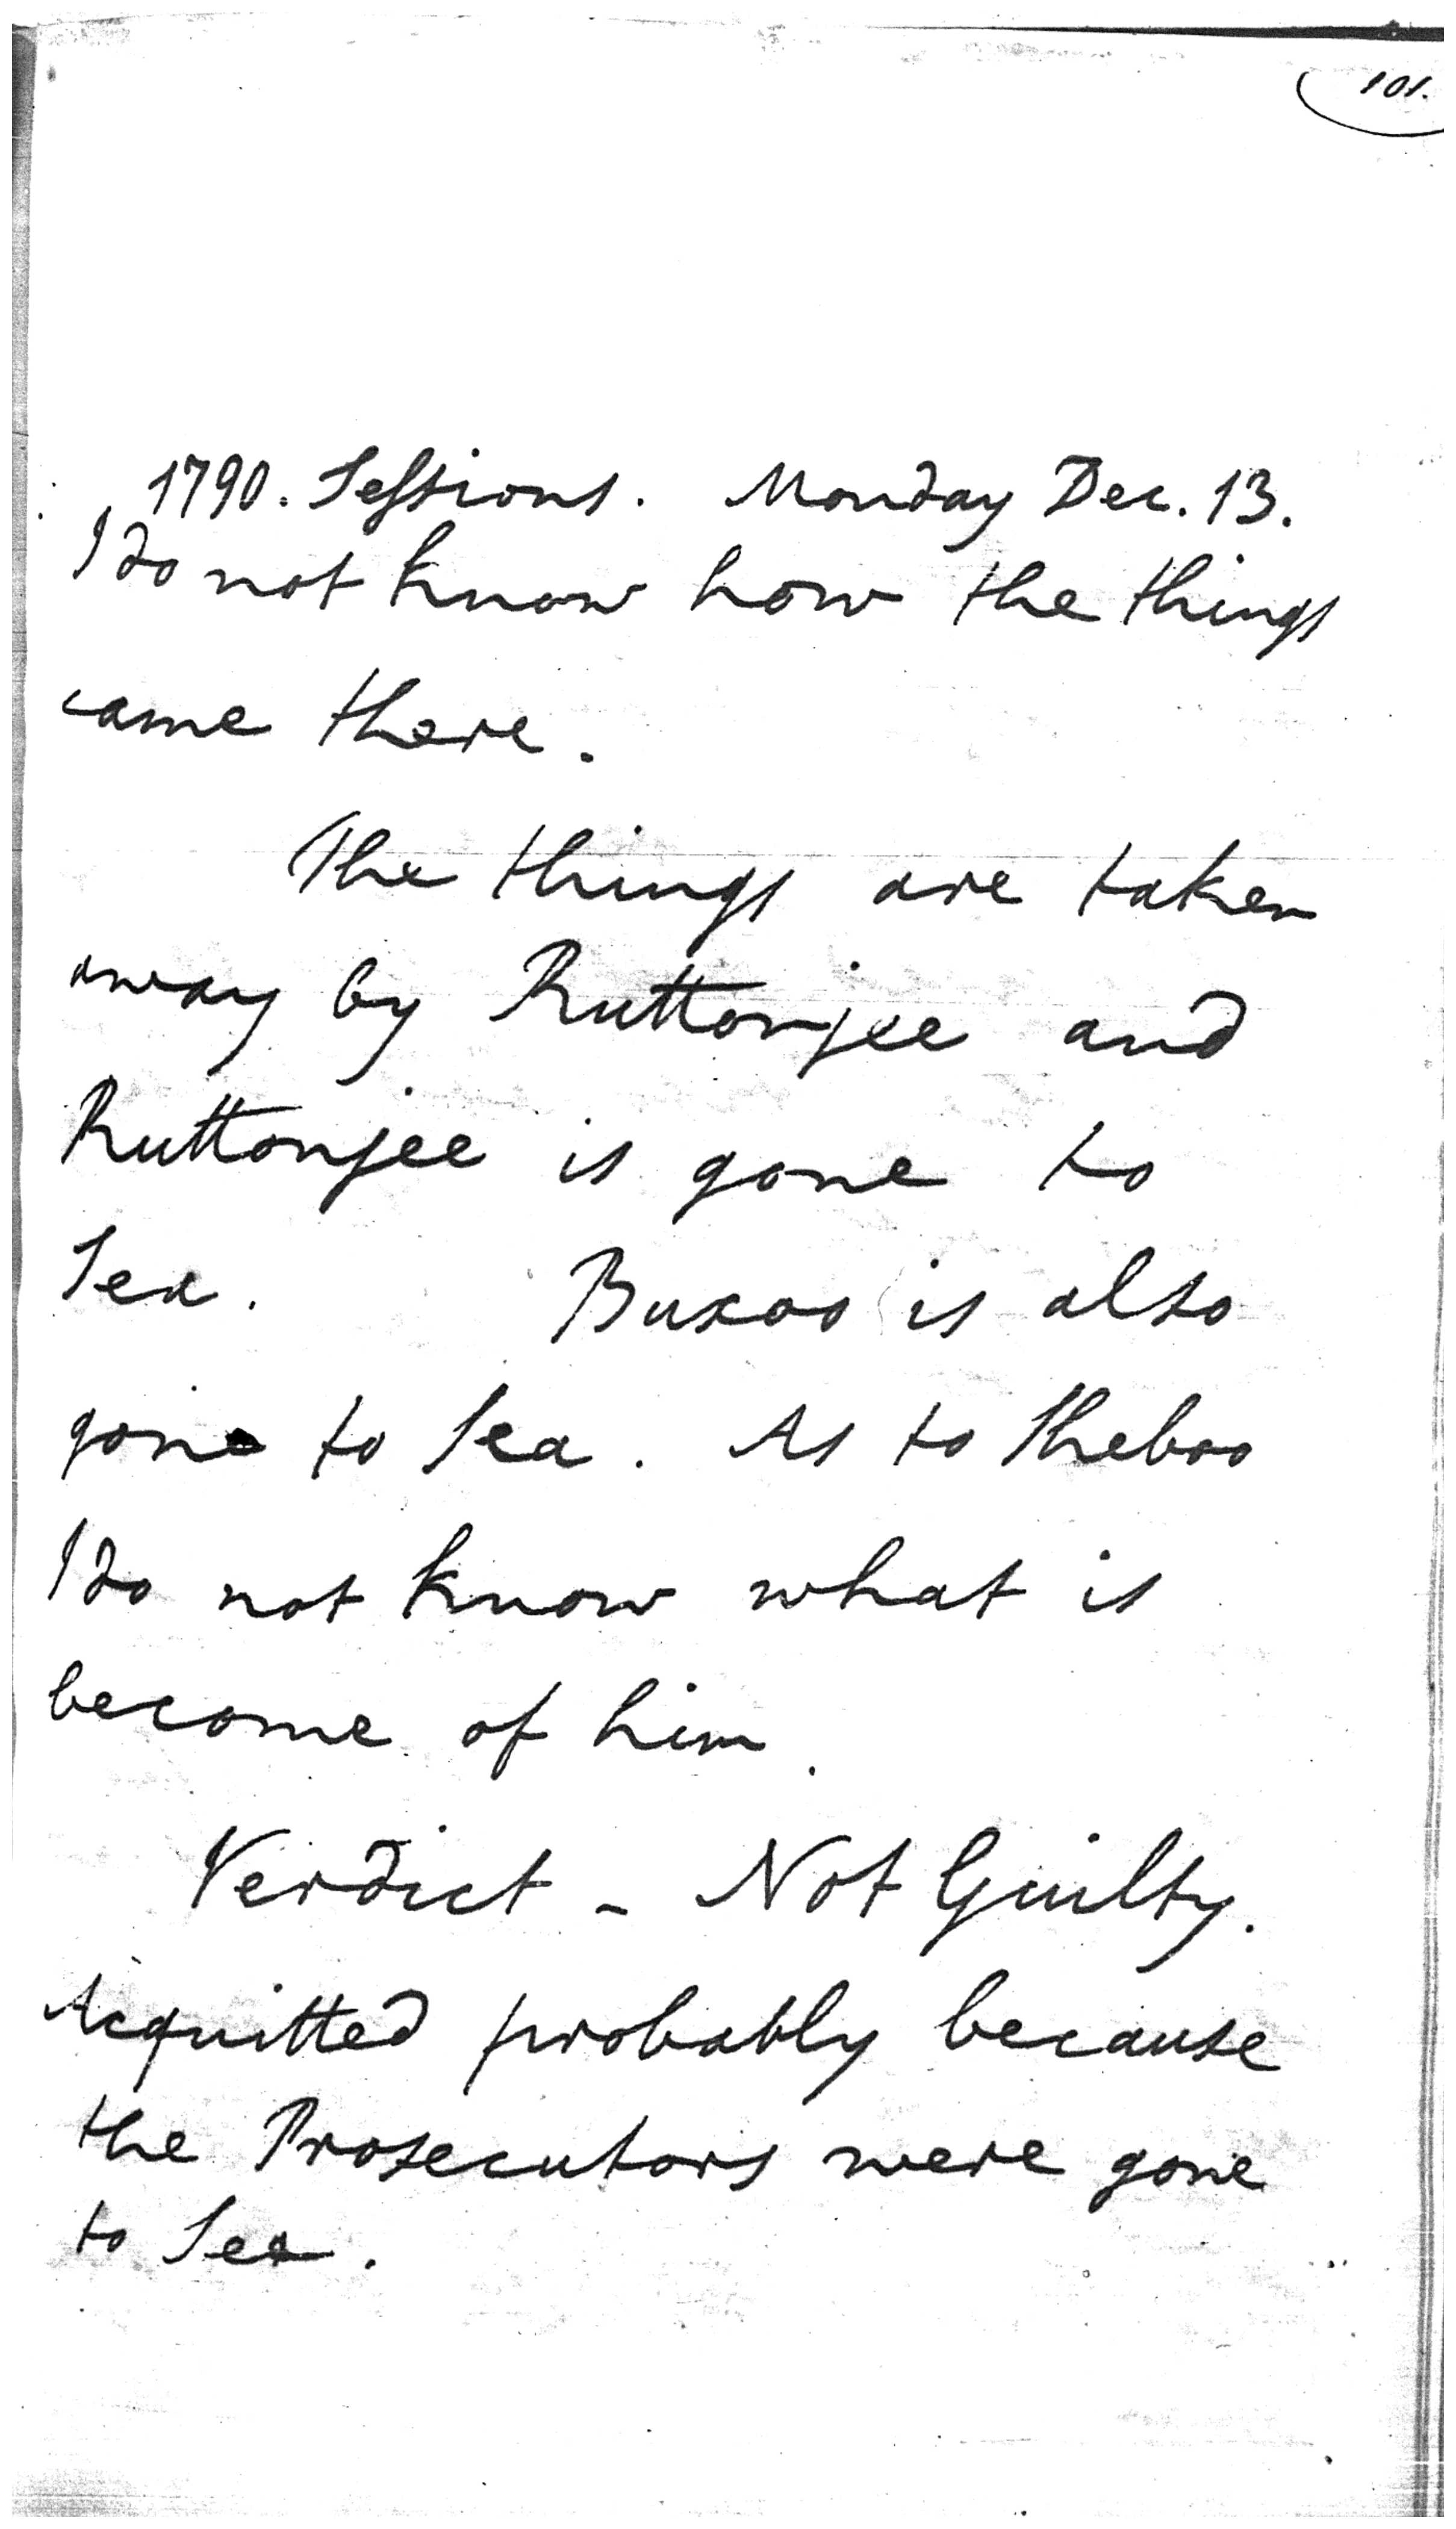 101.
1790. Sessions. Monday Dec. 13.
I do not know how the things
came there.
The things are taken
away by Ruttonjee and
Ruttonjee is gone to
Sea. Buxoo is also
gone to Sea. As to Sheboo
I do not know what is
become of him.
Verdict - Not Guilty.
Acquitted probably because
the Prosecutors were gone
to Sea.